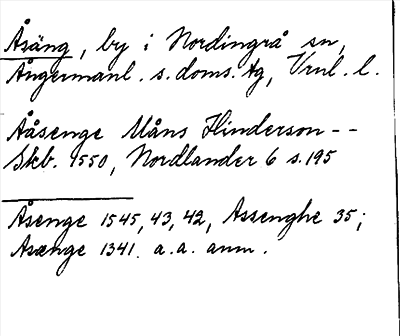 Åsäng, by i Nordingrå sn,
Ångermanl. s. doms. tg, Vrnl. l.
Ååsenge Måns Hinderson - -
Skb. 1550, Nordlander 6 s. 195
Åsenge 1545, 43, 42, Assenghe 35;
Asænge 1341. a. a. anm.